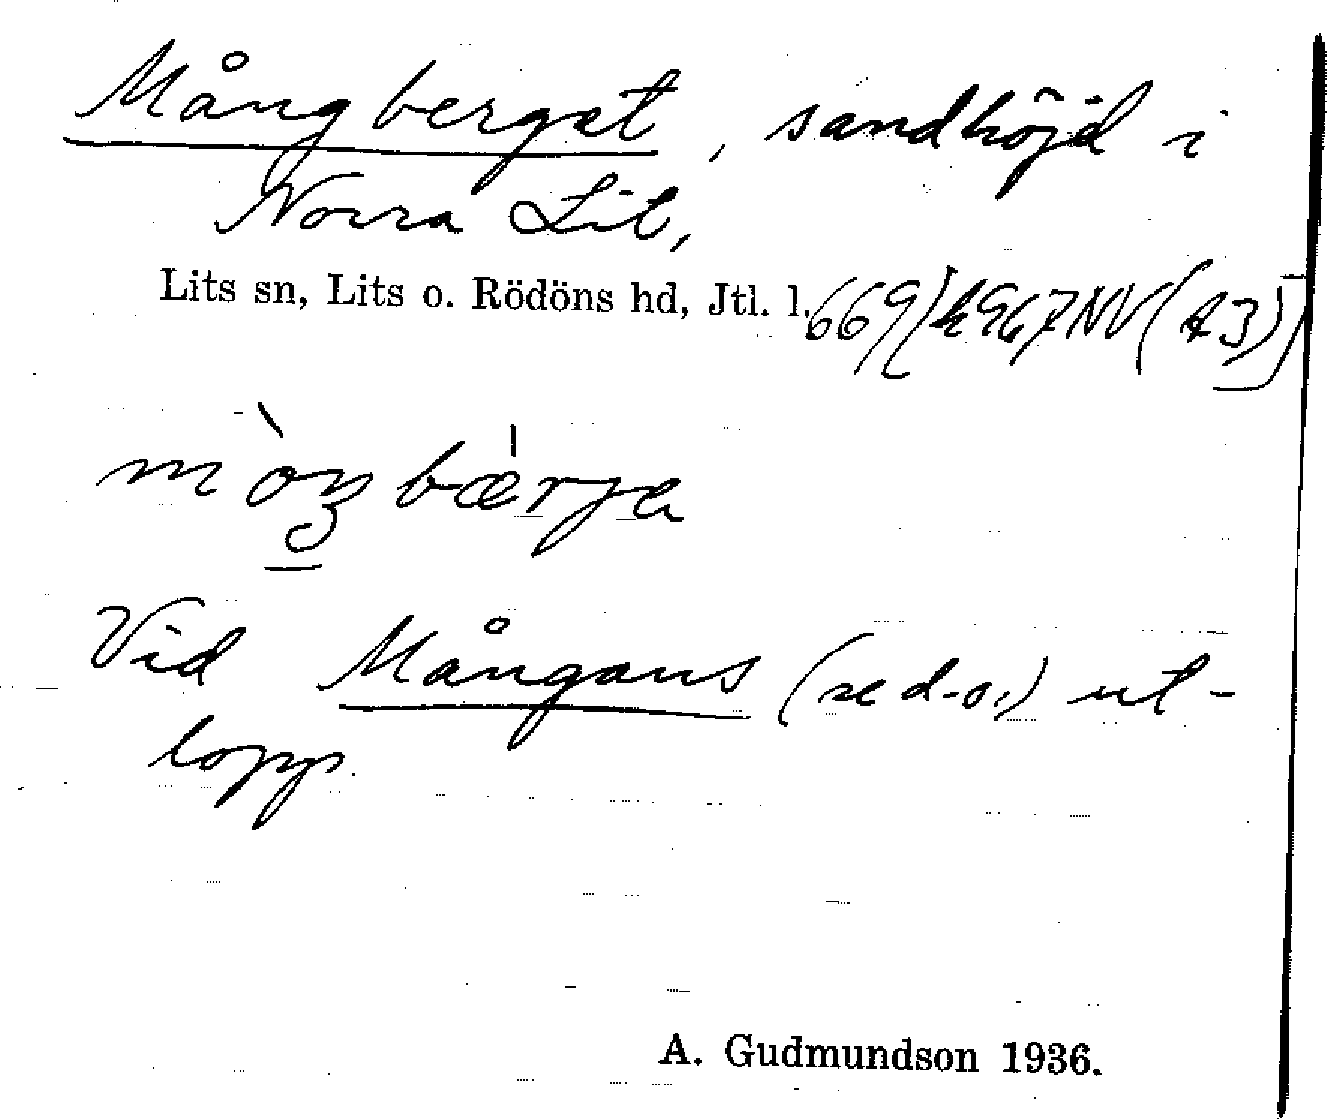 Mångberget, sandhöjd i
Norra Lit,
Lits sn, Lits o. Rödöns hd, Jtl. l.
Vid Mångans (se d.o.) ut-
lopp.
A. Gudmundson 1936.